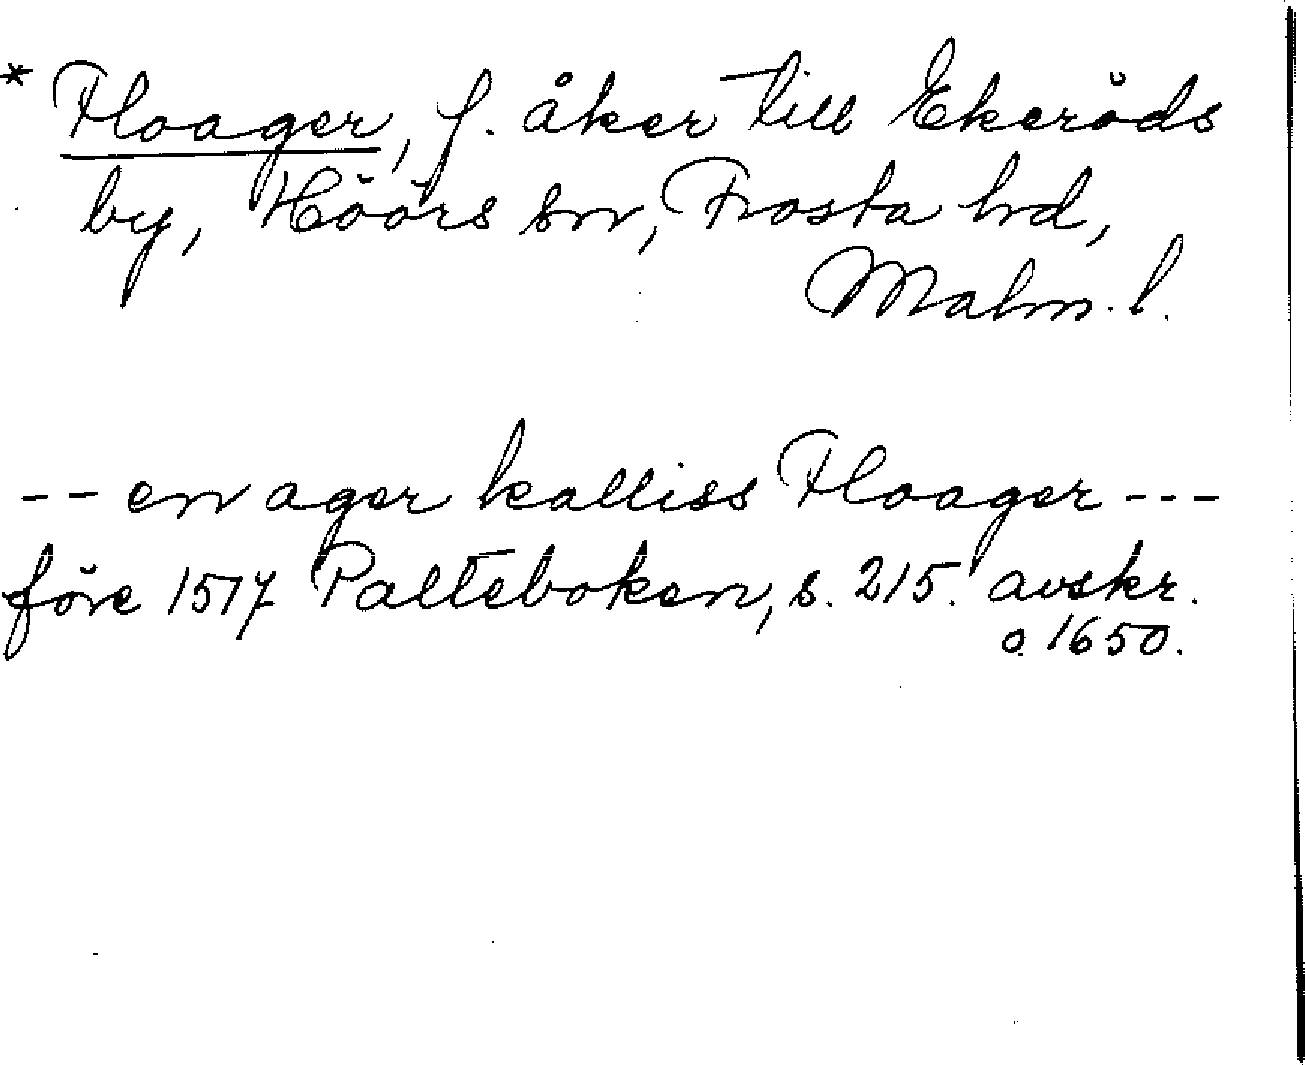 * Floager, f. åker till Ekeröds
by, Höörs sn, Frosta hd,
Malm. l.
-- en ager kalliss Floager ---
före 1517 Palteboken, s. 215. avskr.
o. 1650.